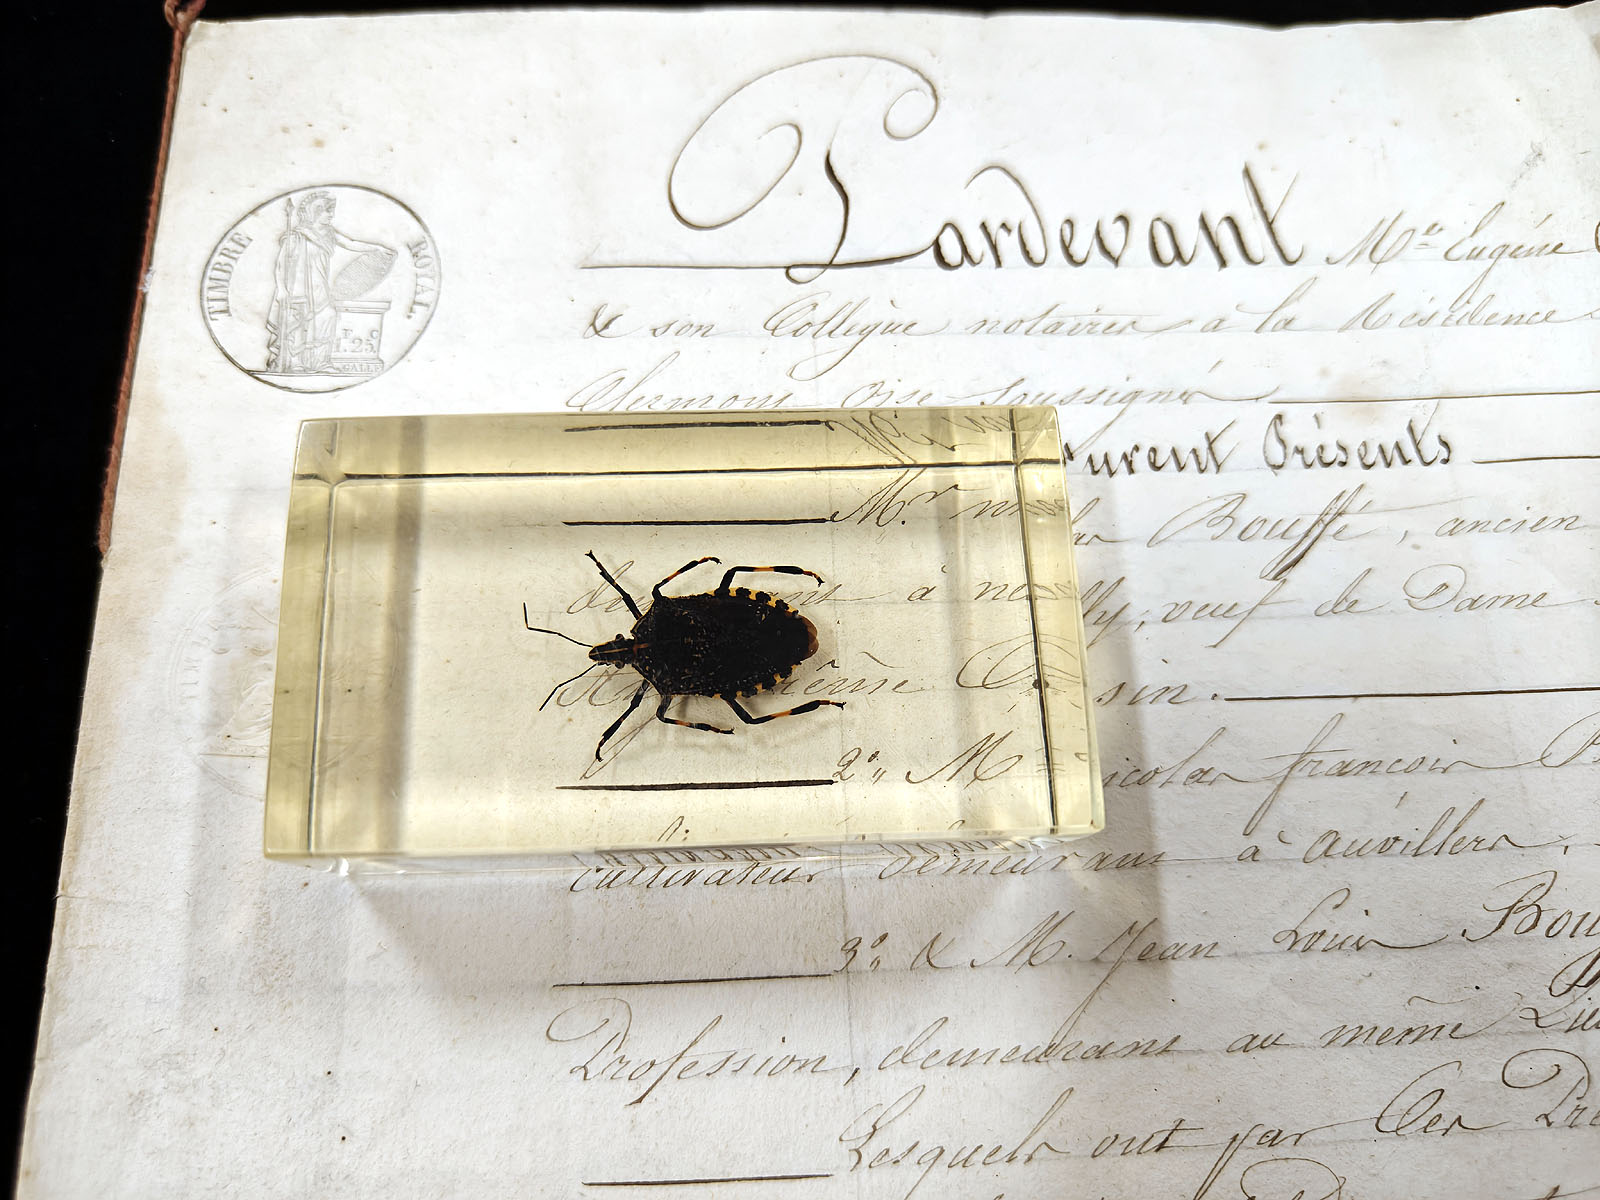 TIMBRE ROYAL
F. C
1. 25.
GALLE
Pardevant Me Eugène
& son Collègue notaires à la Résidence
Clermont Oise soussignés
urent Présents
Mr
Bouffé, ancien
à
lly, veuf de Dame
même
sin.
2° M icolas françois
cultivateur demeurant à Auvillers.
3° & M. Jean Louis Bou
Profession, demeurant au même Lieu
Lesquels ont par Ces Pré